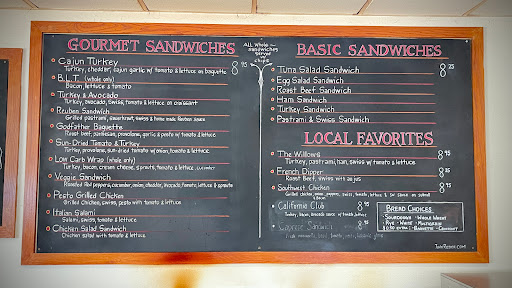 GOURMET SANDWICHES
ALL Whole
sandwiches
served
w/
chips
Cajun Turkey 8 95
Turkey, cheddar, cajun garlic w/ tomato & lettuce on baguette
B.L.T. (whole only)
Bacon, lettuce & tomato
Turkey & Avocado
Turkey, avocado, swiss, tomato & lettuce on croissant
Reuben Sandwich
Grilled pastrami, sauerkraut, swiss & home made Reuben sauce
Godfather Baguette
Roast beef, parmesan, provolone, garlic & pesto w/ tomato & lettuce
Sun-Dried Tomato & Turkey
Turkey, provolone, sun-dried tomato w/ onion, tomato & lettuce
Low Carb Wrap (whole only)
Turkey, bacon, cream cheese, sprouts, tomato & lettuce, cucumber
Veggie Sandwich
Roasted Red peppers, cucumber, onion, cheddar, avocado, tomato, lettuce & sprouts
Pesto Grilled Chicken
Grilled Chicken, swiss, pesto with tomato & lettuce
Italian Salami
Salami, swiss, tomato & lettuce
Chicken Salad Sandwich
Chicken salad with tomato & lettuce
BASIC SANDWICHES
Tuna Salad Sandwich
Egg Salad Sandwich
Roast Beef Sandwich
Ham Sandwich
Turkey Sandwich
Pastrami & Swiss Sandwich
LOCAL FAVORITES
The Willows 8 95
Turkey, pastrami, ham, swiss w/ tomato & lettuce
French Dipper
Roast Beef, swiss with au jus
Southwest Chicken
California Club 8 95
Turkey, bacon, avocado sauce w/ tomato lettuce
Caprese Sandwich
BREAD CHOICES
- SOURDOUGH - WHOLE WHEAT
- RYE - WHITE - MULTIGRAIN
$0.50 extra: - BAGUETTE - CROISSANT